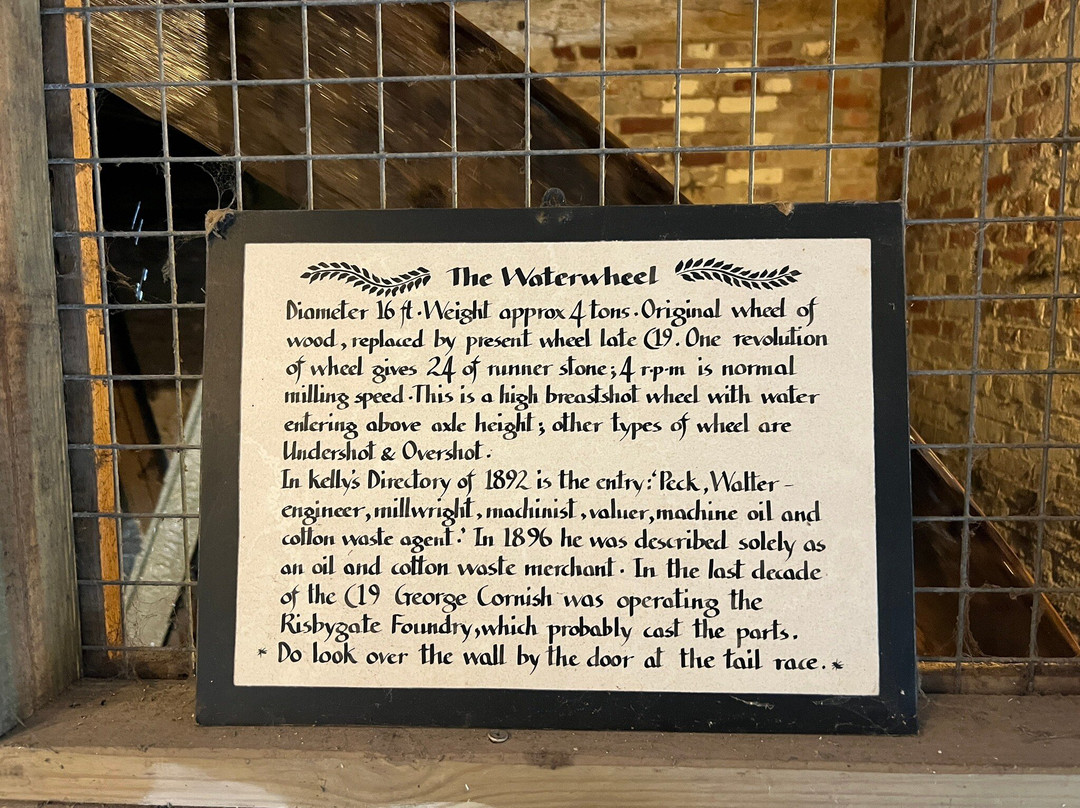 The Waterwheel
Diameter 16 ft · Weight approx 4 tons · Original wheel of
wood, replaced by present wheel late C19. One revolution
of wheel gives 24 of runner stone; 4 r·p·m is normal
milling speed · This is a high breastshot wheel with water
entering above axle height; other types of wheel are
Undershot & Overshot.
In Kelly's Directory of 1892 is the entry: 'Peck, Walter -
engineer, millwright, machinist, valuer, machine oil and
cotton waste agent.' In 1896 he was described solely as
an oil and cotton waste merchant · In the last decade
of the C19 George Cornish was operating the
Risbygate Foundry, which probably cast the parts.
* Do look over the wall by the door at the tail race. *